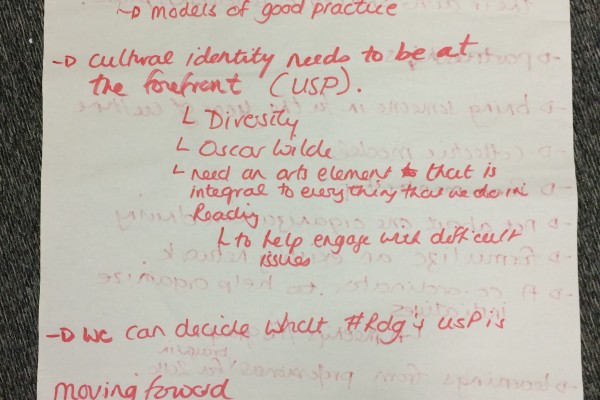 → models of good practice
→ cultural identity needs to be at
the forefront (USP).
↳ Diversity
↳ Oscar Wilde
↳ need an arts element that is
integral to everything that we do in
Reading
↳ to help engage with difficult
issues
→ We can decide what #Rdg USP is
moving forward